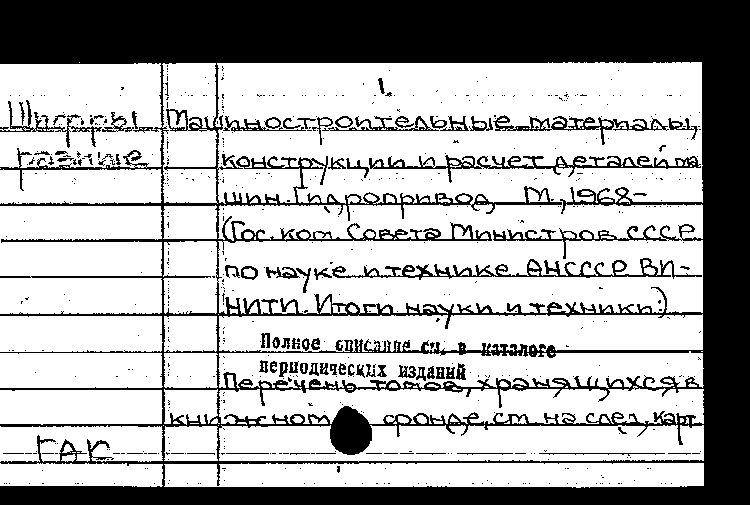 1.
Шифры
разные
Машиностроительные материалы,
конструкции и расчет деталей ма
шин. Гидропривод, М., 1968-
(Гос. ком. Совета Министров СССР
по науке и технике. АН СССР ВИ-
НИТИ. Итоги науки и техники.)
Полное описание см. в каталоге
периодических изданий
Перечень томов, хранящихся в
книжном фонде, см. на след. карт
ГАК